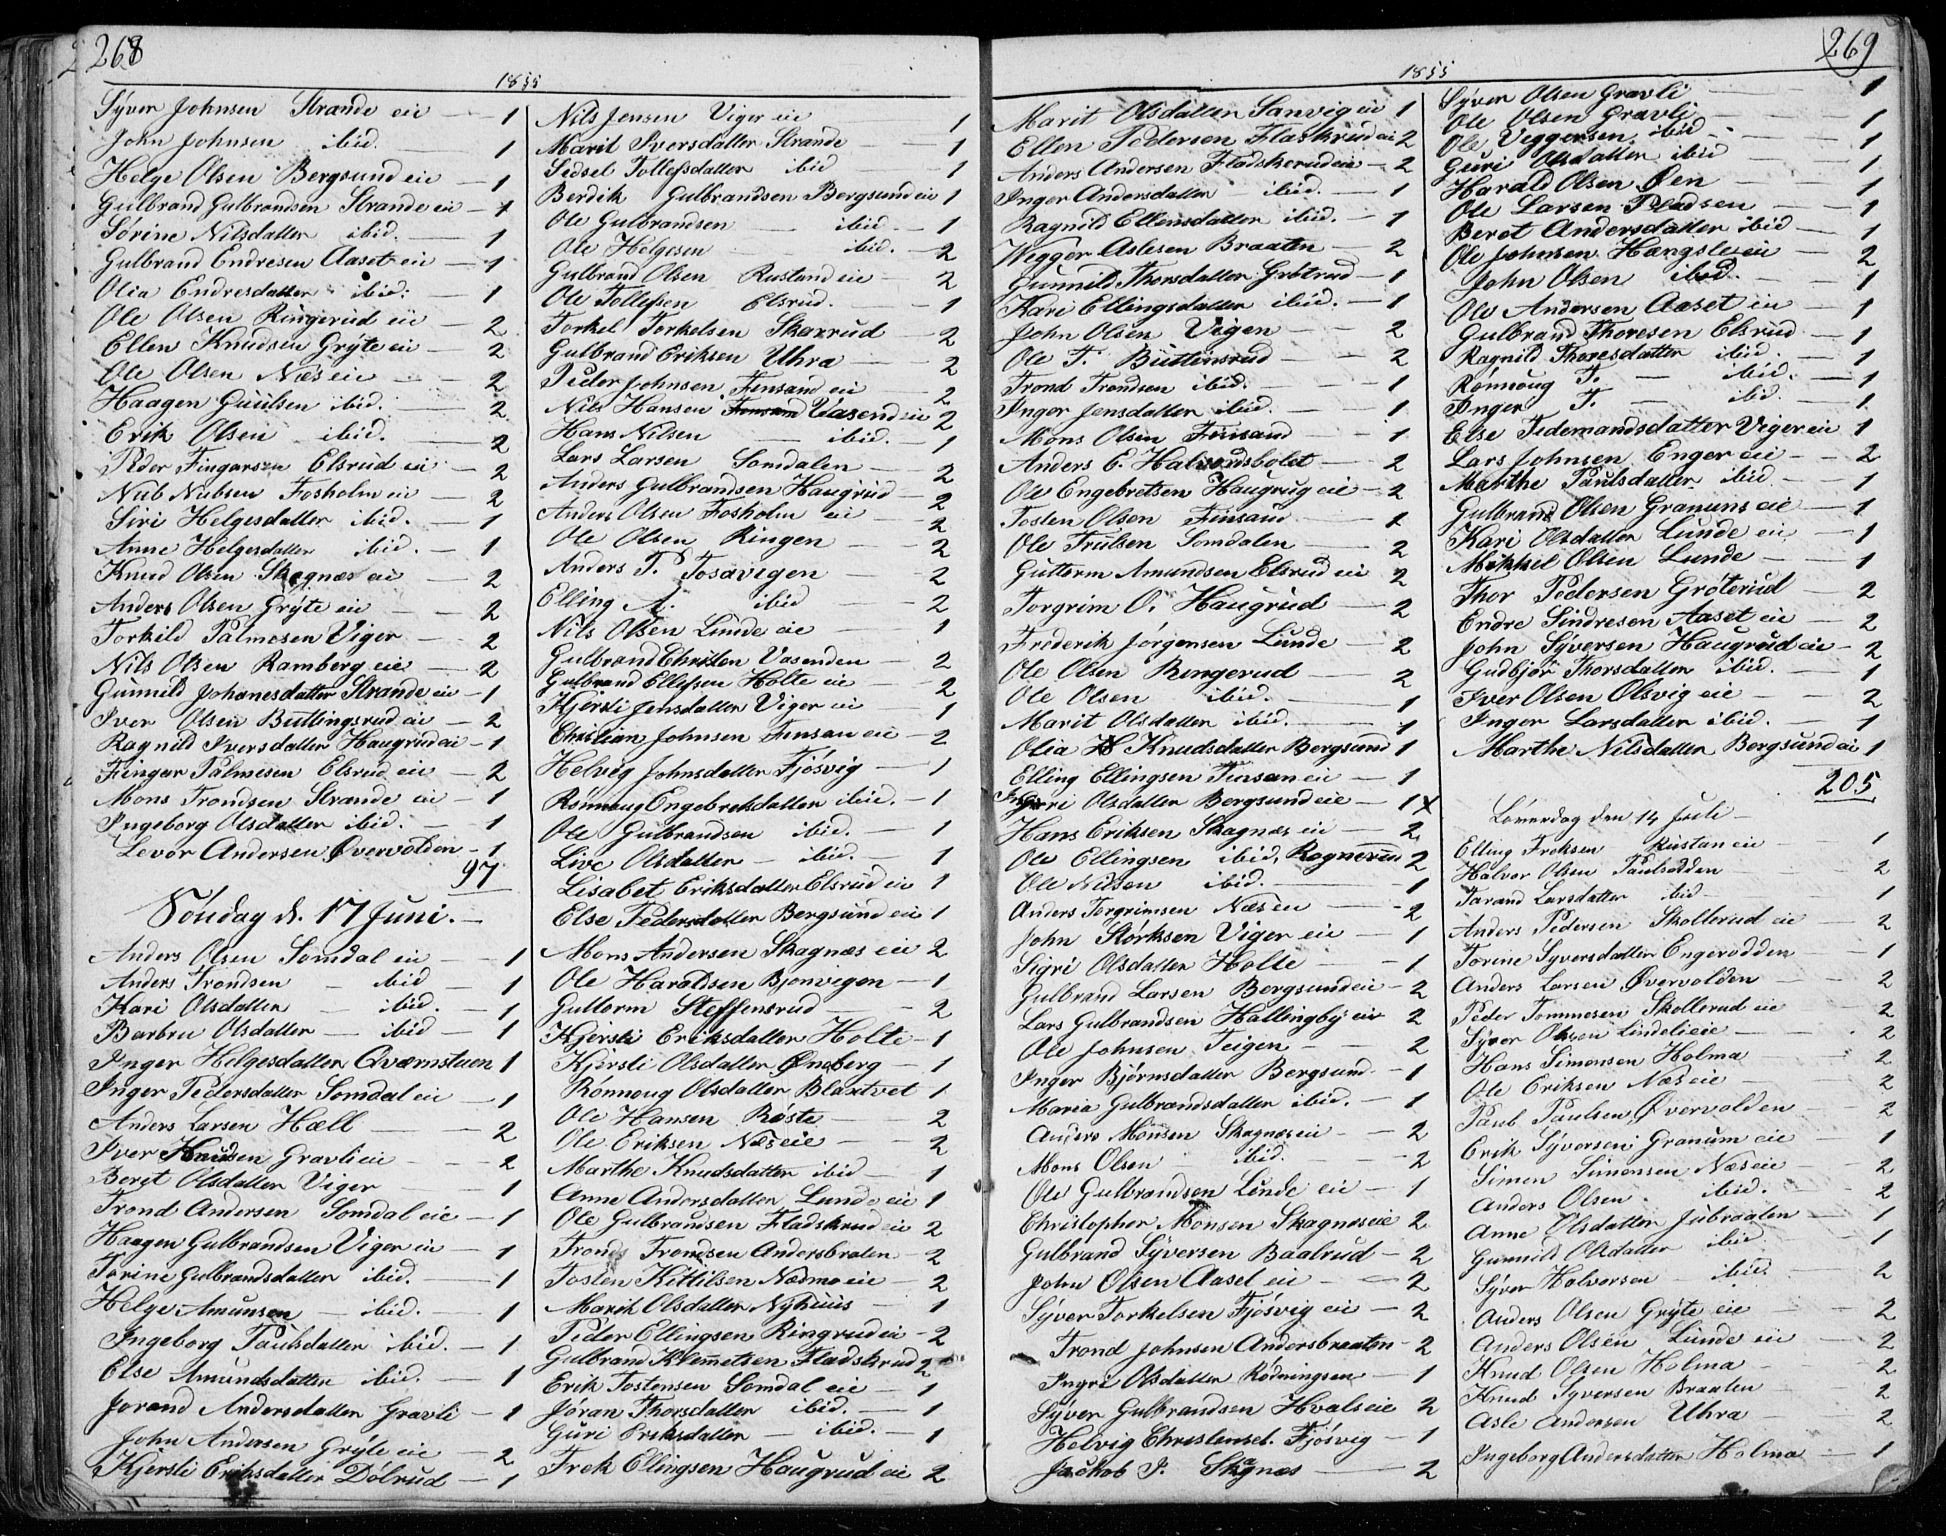 268
1855
Syver Johnsen Strande eie — 1
John Johnsen ibid. 1
Helge Olsen Bergsund eie — 1
Gulbrand Gulbrandsen Strande eie — 1
Sørine Nilsdatter ibid. — 1
Gulbrand Endresen Aaset eie — 1
Olia Endresdatter ibid: — 1
Ole Olsen Ringerud eie — 2
Ellen Knudsen Gryte eie — 2
Ole Olsen Næs eie — 2
Haagen Guulsen ibid. — 2
Erik Olsen ibid. — 2
Peder Fingarsen Elsrud eie — 2
Nub Nubsen Fosholm eie — 2
Siri Helgesdatter ibid. — 1
Anne Helgesdatter ibid. — 1
Knud Olsen Skagnæs eie — 2
Anders Olsen Gryte eie — 2
Torkild Palmesen Viger — 2
Nils Olsen Ramberg eie — 2
Gunnild Johanesdatter Strande eie — 1
Iver Olsen Butlingsrud eie — 2
Ragnild Iversdatter Haugrud eie — 1
Fingar Palmesen Elsrud eie — 2
Mons Trondsen Strande eie — 1
Ingeborg Olsdatter ibid. — 1
Levor Andersen Øvervolden — 1
97
Sönday d. 17 Juni. —
Anders Olsen Somdal eie — 1
Anders Trondsen — ibid — 1
Kari Olsdatter — ibid. — 1
Barbru Olsdatter — ibid — 1
Inger Helgesdatter Qværnstuen 1
Inger Pedersdatter Somdal eie — 1
Anders Larsen Hæll — 2
Iver Knudsen Gravli eie — 2
Beret Olsdatter Viger — 1
Trond Andersen Somdal eie — 1
Haagen Gulbrandsen Viger eie — 1
Torine Gulbrandsdatter ibid. — 1
Helge Amunsen — ibid. — 1
Ingeborg Paulsdatter ibid. — 1
Else Amundsdatter ibid. — 1
Jorand Andersdatter Gravli — 1
John Andersen Gryte eie — 2
Kjersti Eriksdatter Dölrud — 1
Nils Jensen Viger eie 1
Marit Iversdatter Strande — 1
Sidsel Tollefsdatter ibid — 1
Berdik Gulbrandsen Bergsund eie 1
Ole Gulbrandsen — ibid. — 1
Ole Helgesen — ibid. 2
Gulbrand Olsen Rustand eie — 2
Ole Tollefsen Elsrud. — 1
Torkel Torkelsen Skarrud — 2
Gulbrand Eriksen Uhra — 2
Peder Johnsen Finsand eie — 2
Nils Hansen Finsand Vasend eie 2
Hans Nilsen — ibid. 1
Lars Larsen Somdalen — 2
Anders Gulbrandsen Haugrud 2
Anders Olsen Fosholm eie — 2
Ole Olsen Ringen 2
Anders T. Tosavigen — 2
Elling A. ibid — 2
Nils Olsen Lunde eie — 1
Gulbrand Christen Vasenden — 2
Gulbrand Ellefsen Holte eie — 2
Kjersti Jensdatter Viger eie 1
Christian Johnsen Finsan eie — 2
Helvig Johnsdatter Fjösvig — 1
Rönnoug Engebretsdatter ibid. — 1
Ole Gulbrandsen ibid. — 1
Live Olsdatter — ibid. — 1
Lisabet Eriksdatter Elsrud eie 1
Else Pedersdatter Bergsund eie 1
Mons Andersen Skagnæs eie 2
Ole Haraldsen Bjonvigen — 1
Guttorm Steffensrud — 2
Kjersti Eriksdatter Holte — 1
Kjersti Olsdatter Øneberg — 1
Rönnoug Olsdatter Blaxtvet 1
Ole Hansen Røste — 2
Ole Eriksen Næs eie — 2
Marthe Knudsdatter ibid — 1
Anne Andersdatter Lunde eie 1
Ole Gulbrandsen Fladskrud eie 2
Trond Trondsen Andersbraten — 2
Tosten Kittilsen Nædmo eie — 2
Marit Olsdatter Nyhuus — 1
Peder Ellingsen Ringrud eie — 2
Gulbrand Klemmetsen Fladskrud 2
Erik Tostensen Somdal eie — 1
Jöran Thorsdatter ibid. — 1
Guri Eriksdatter — ibid. — 1
Frek Ellingsen Haugrud eie 2
269
1855
Marit Olsdatter Sanvig eie 1
Ellen Pedersen Flaskrud eie 2
Anders Andersen Fladskerud eie — 2
Inger Andersdatter ibid. — 1
Ragnild Ellensdatter ibid. — 1
Wegger Aslesen Braaten — 2
Gunnild Thorsdatter Grötrud — 1
Kari Ellingsdatter ibid. — 1
John Olsen Vigen — 2
Ole T. Butlinsrud — 2
Trond Trondsen ibid. — 1
Inger Jensdatter ibid. — 1
Mons Olsen Finsand — 1
Anders E. Halvordsbolet — 2
Ole Engebretsen Haugrug eie — 2
Tosten Olsen Finsand — 1
Ole Truilsen Somdalen — 2
Guttorm Amundsen Elsrud eie 2
Torgrim O. Haugrud — 2
Frederik Jörgensen Lunde — 2
Ole Olsen Ringerud — 2
Ole Olsen ibid. — 1
Marit Olsdatter ibid. — 1
Olia Knudsdatter Bergsund 1
Elling Ellingsen Finsan eie — 1
Ingri Olsdatter Bergsund eie — 1 x
Hans Eriksen Skagnæs eie — 2
Ole Ellingsen ibid. Rognerud 2
Ole Nilsen ibid. — 1
Anders Torgrimsen Næs eie — 2
John Störksen Viger eie — 1
Sigri Olsdatter Holte — 1
Gulbrand Larsen Bergsund eie — 2
Lars Gulbrandsen Hallingby eie 2
Ole Johnsen Teigen — 2
Inger Björnsdatter Bergsund — 1
Maria Gulbrandsdatter ibid. — 1
Anders Monsen Skagnæs eie — 2
Mons Olsen ibid. — 2
Ole Gulbrandsen Lunde eie — 1
Christopher Monsen Skagnæs eie 2
Gulbrand Syversen Baalrud — 2
John Olsen Aaset eie — 2
Syver Torkelsen Fjösvig eie — 2
Trond Johnsen Andersbraaten — 2
Ingri Olsdatter Rödningsen — 1
Syver Gulbrandsen Hvals eie 2
Helvig Christensd. Fjösvig — 1
Jackob J. Skagnæs — 2
Syver Olsen Gravli — 1
Ole Olsen Gravli — 1
Ole Veggersen ibid — 1
Guri Olsdatter ibid — 1
Harald Olsen Øen — 1
Ole Larsen Pladsen — 1
Beret Andersdatter ibid — 1
Ole Johnsen Hængsle eie — 2
John Olsen ibid. — 1
Ole Andersen Aaset eie — 1
Gulbrand Thoresen Elsrud — 1
Ragnild Thoresdatter ibid. — 1
Rönnoug T. — ibid. — 1
Inger T. — ibd. — 1
Else Tidemandsdatter Viger eie 1
Lars Johnsen Enger eie — 2
Marthe Paulsdatter ibid. — 1
Gulbrand Olsen Granums eie — 1
Kari Olsdatter Lunde eie — 1
Mikkel Olsen Lunde — 1
Thor Pedersen Gröterud — 2
Endre Sindresen Aaset eie — 2
John Syversen Haugrud eie — 2
Gudbjör Thorsdatter ibid. — 1
Iver Olsen Olsvig eie — 2
Inger Larsdatter ibid. — 1
Marthe Nilsdatter Bergsund eie 1
205
Löverdag den 14 Juli —
Elling Freksen Rustan eie — 1
Halvor Olsen Paulsødden — 2
Tarand Larsdatter ibid — 1
Anders Pedersen Skollerud eie 2
Torine Syversdatter Engerodden — 1
Anders Larsen Øvervolden — 2
Peder Tommesen Skollerud eie 2
Syver Olsen Lindeli eie — 2
Hans Simonsen Holma — 2
Ole Eriksen Næs eie — 2
Paul Paulsen Øvervolden — 2
Erik Syversen Granum eie — 1
Simen Simensen Næs eie — 2
Anders Olsen ibid. — 2
Anne Olsdatter Jubraaten — 1
Gunnild Olsdatter ibid. — 1
Syver Halvorsen — ibid. 2
Anders Olsen Gryte eie — 2
Anders Olsen Lunde eie — 2
Knud Olsen Holma — 2
Knud Syversen Braaten — 2
Asle Andersen Uhra — 2
Ingeborg Andersdatter Holma — 1